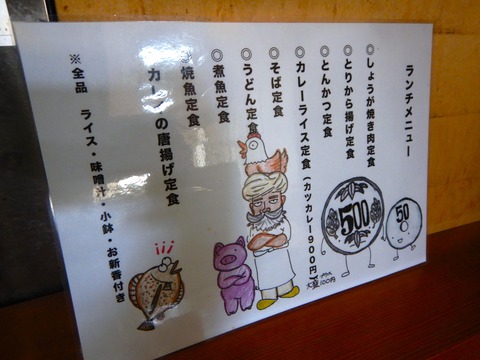 ランチメニュー
◎しょうが焼き肉定食
◎とりから揚げ定食
◎とんかつ定食
◎カレーライス定食(カツカレー900円)
◎そば定食
◎うどん定食
◎煮魚定食
◎焼魚定食
の唐揚げ定食
※全品 ライス・味噌汁・小鉢・お新香付き
500
50
100円